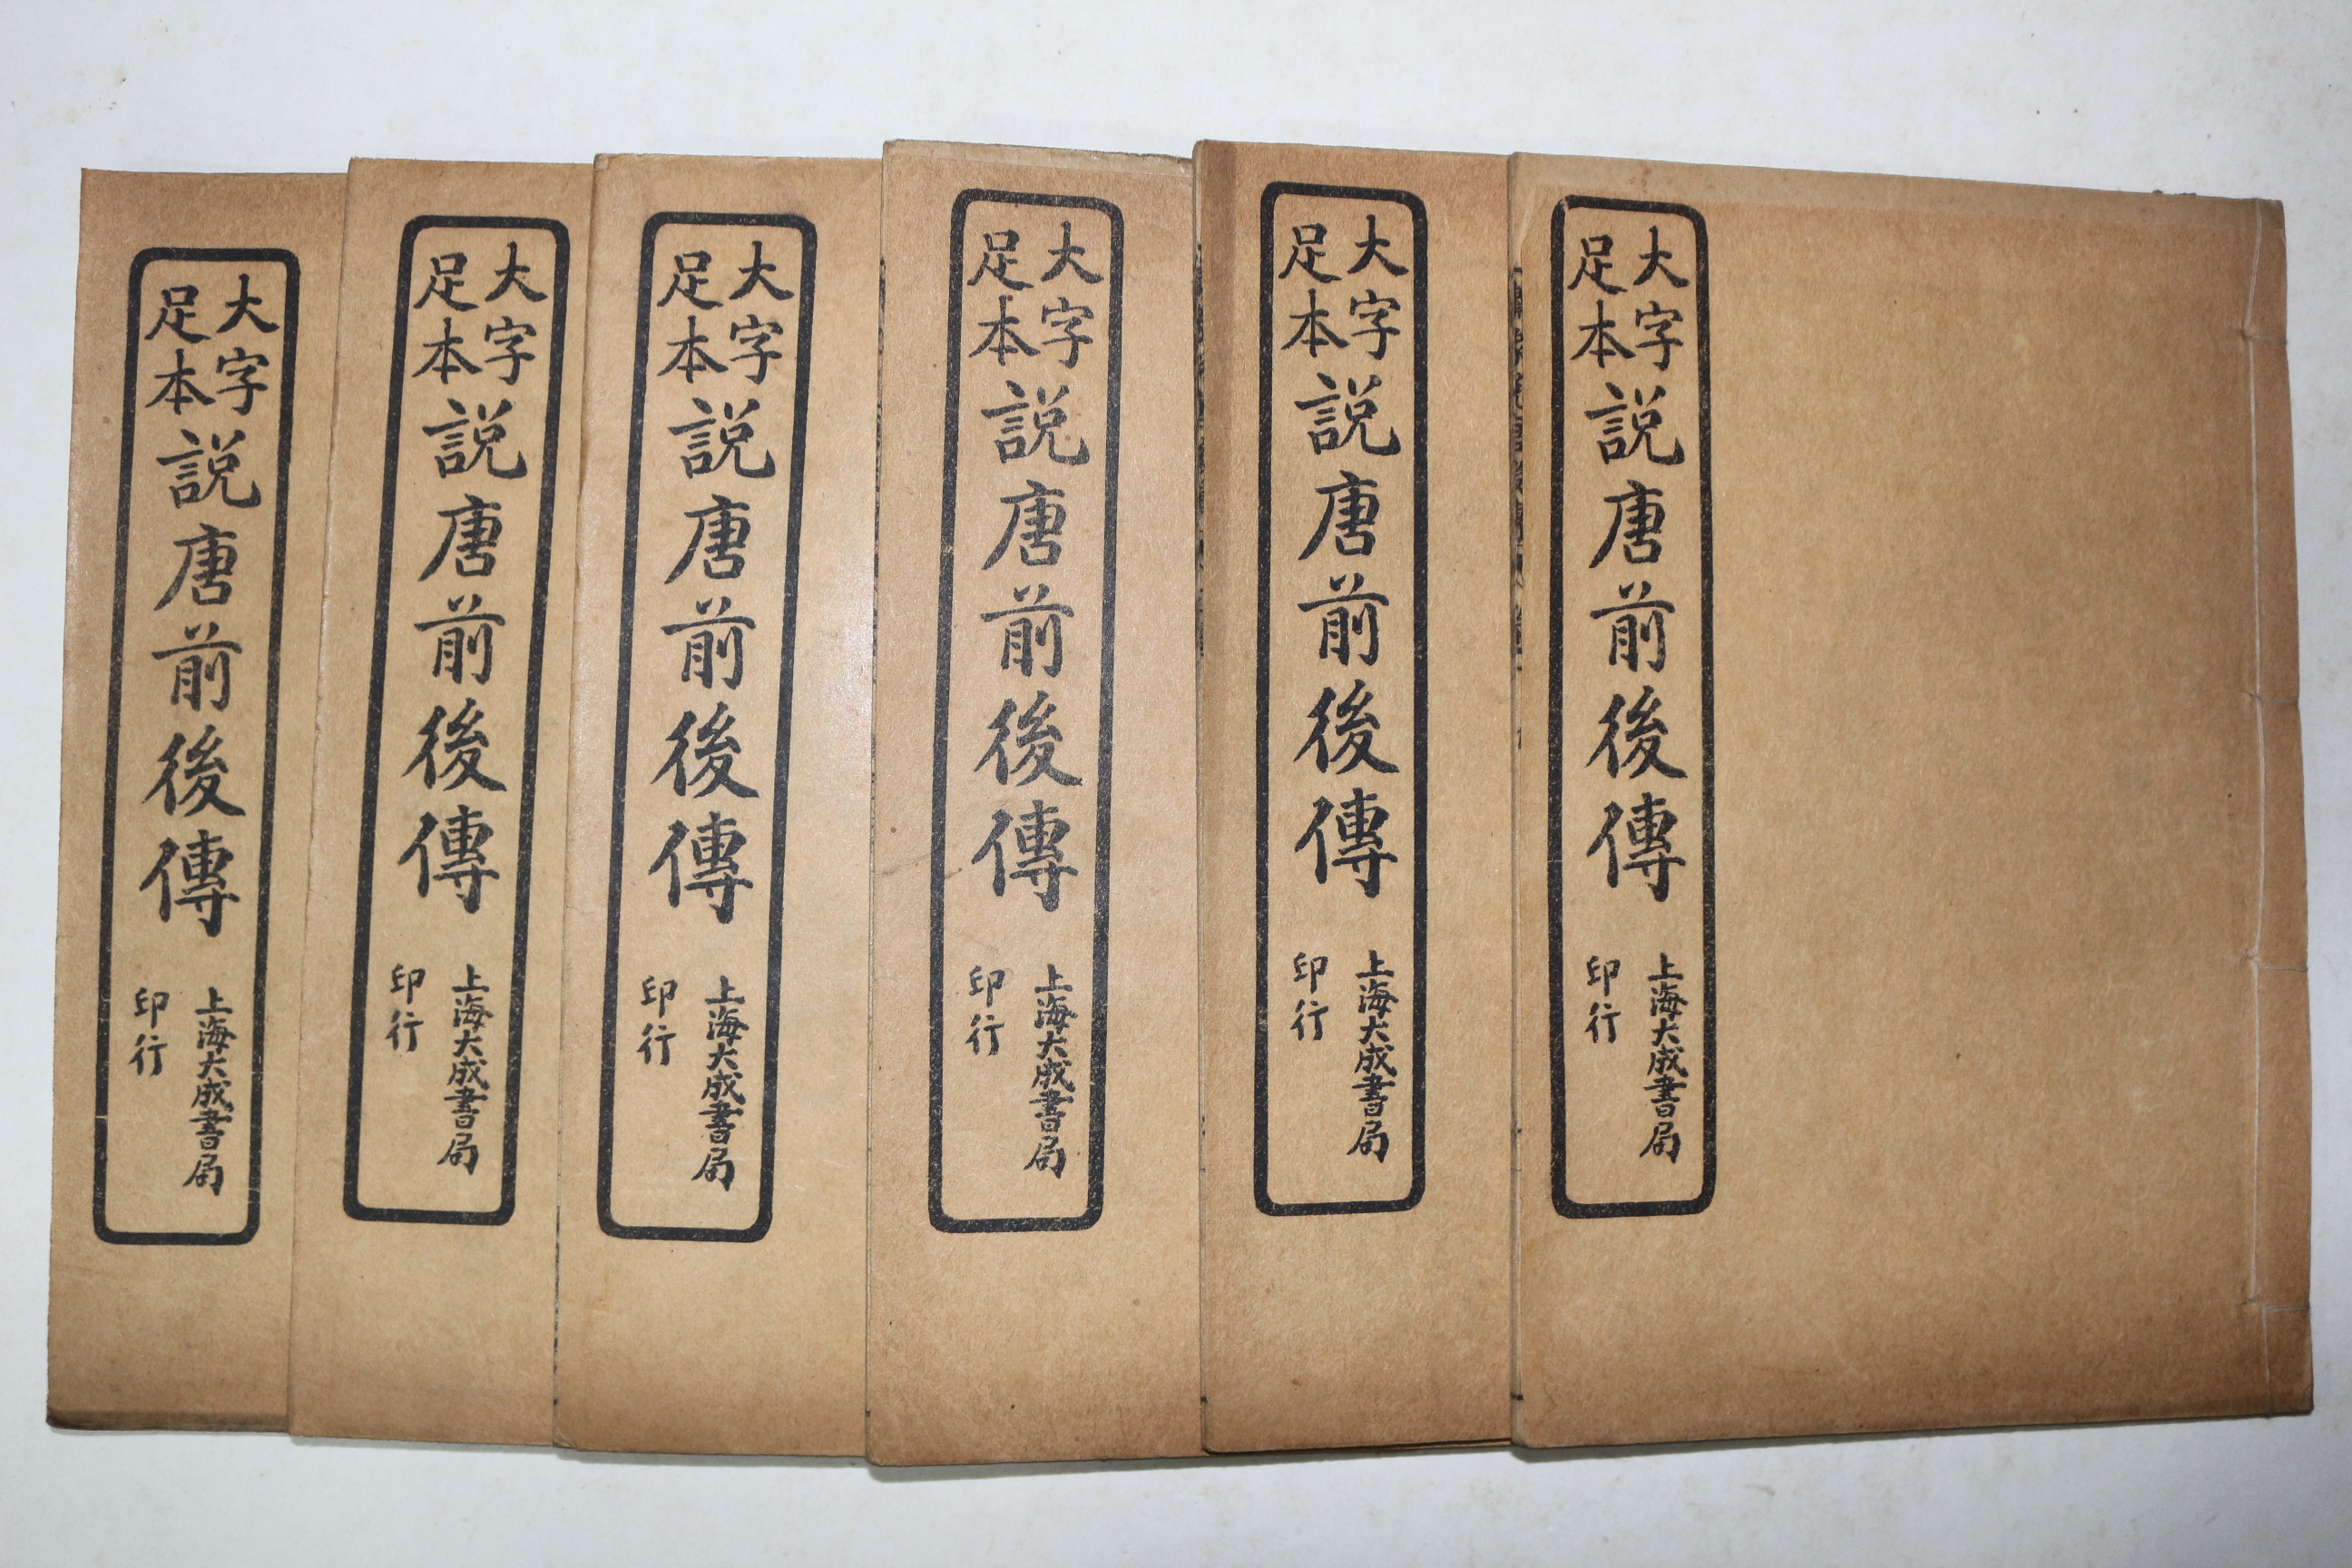 大字
足本
説唐前後傳
上海大成書局
印行
大字
足本
説唐前後傳
上海大成書局
印行
大字
足本
説唐前後傳
上海大成書局
印行
大字
足本
説唐前後傳
上海大成書局
印行
大字
足本
説唐前後傳
上海大成書局
印行
大字
足本
説唐前後傳
上海大成書局
印行